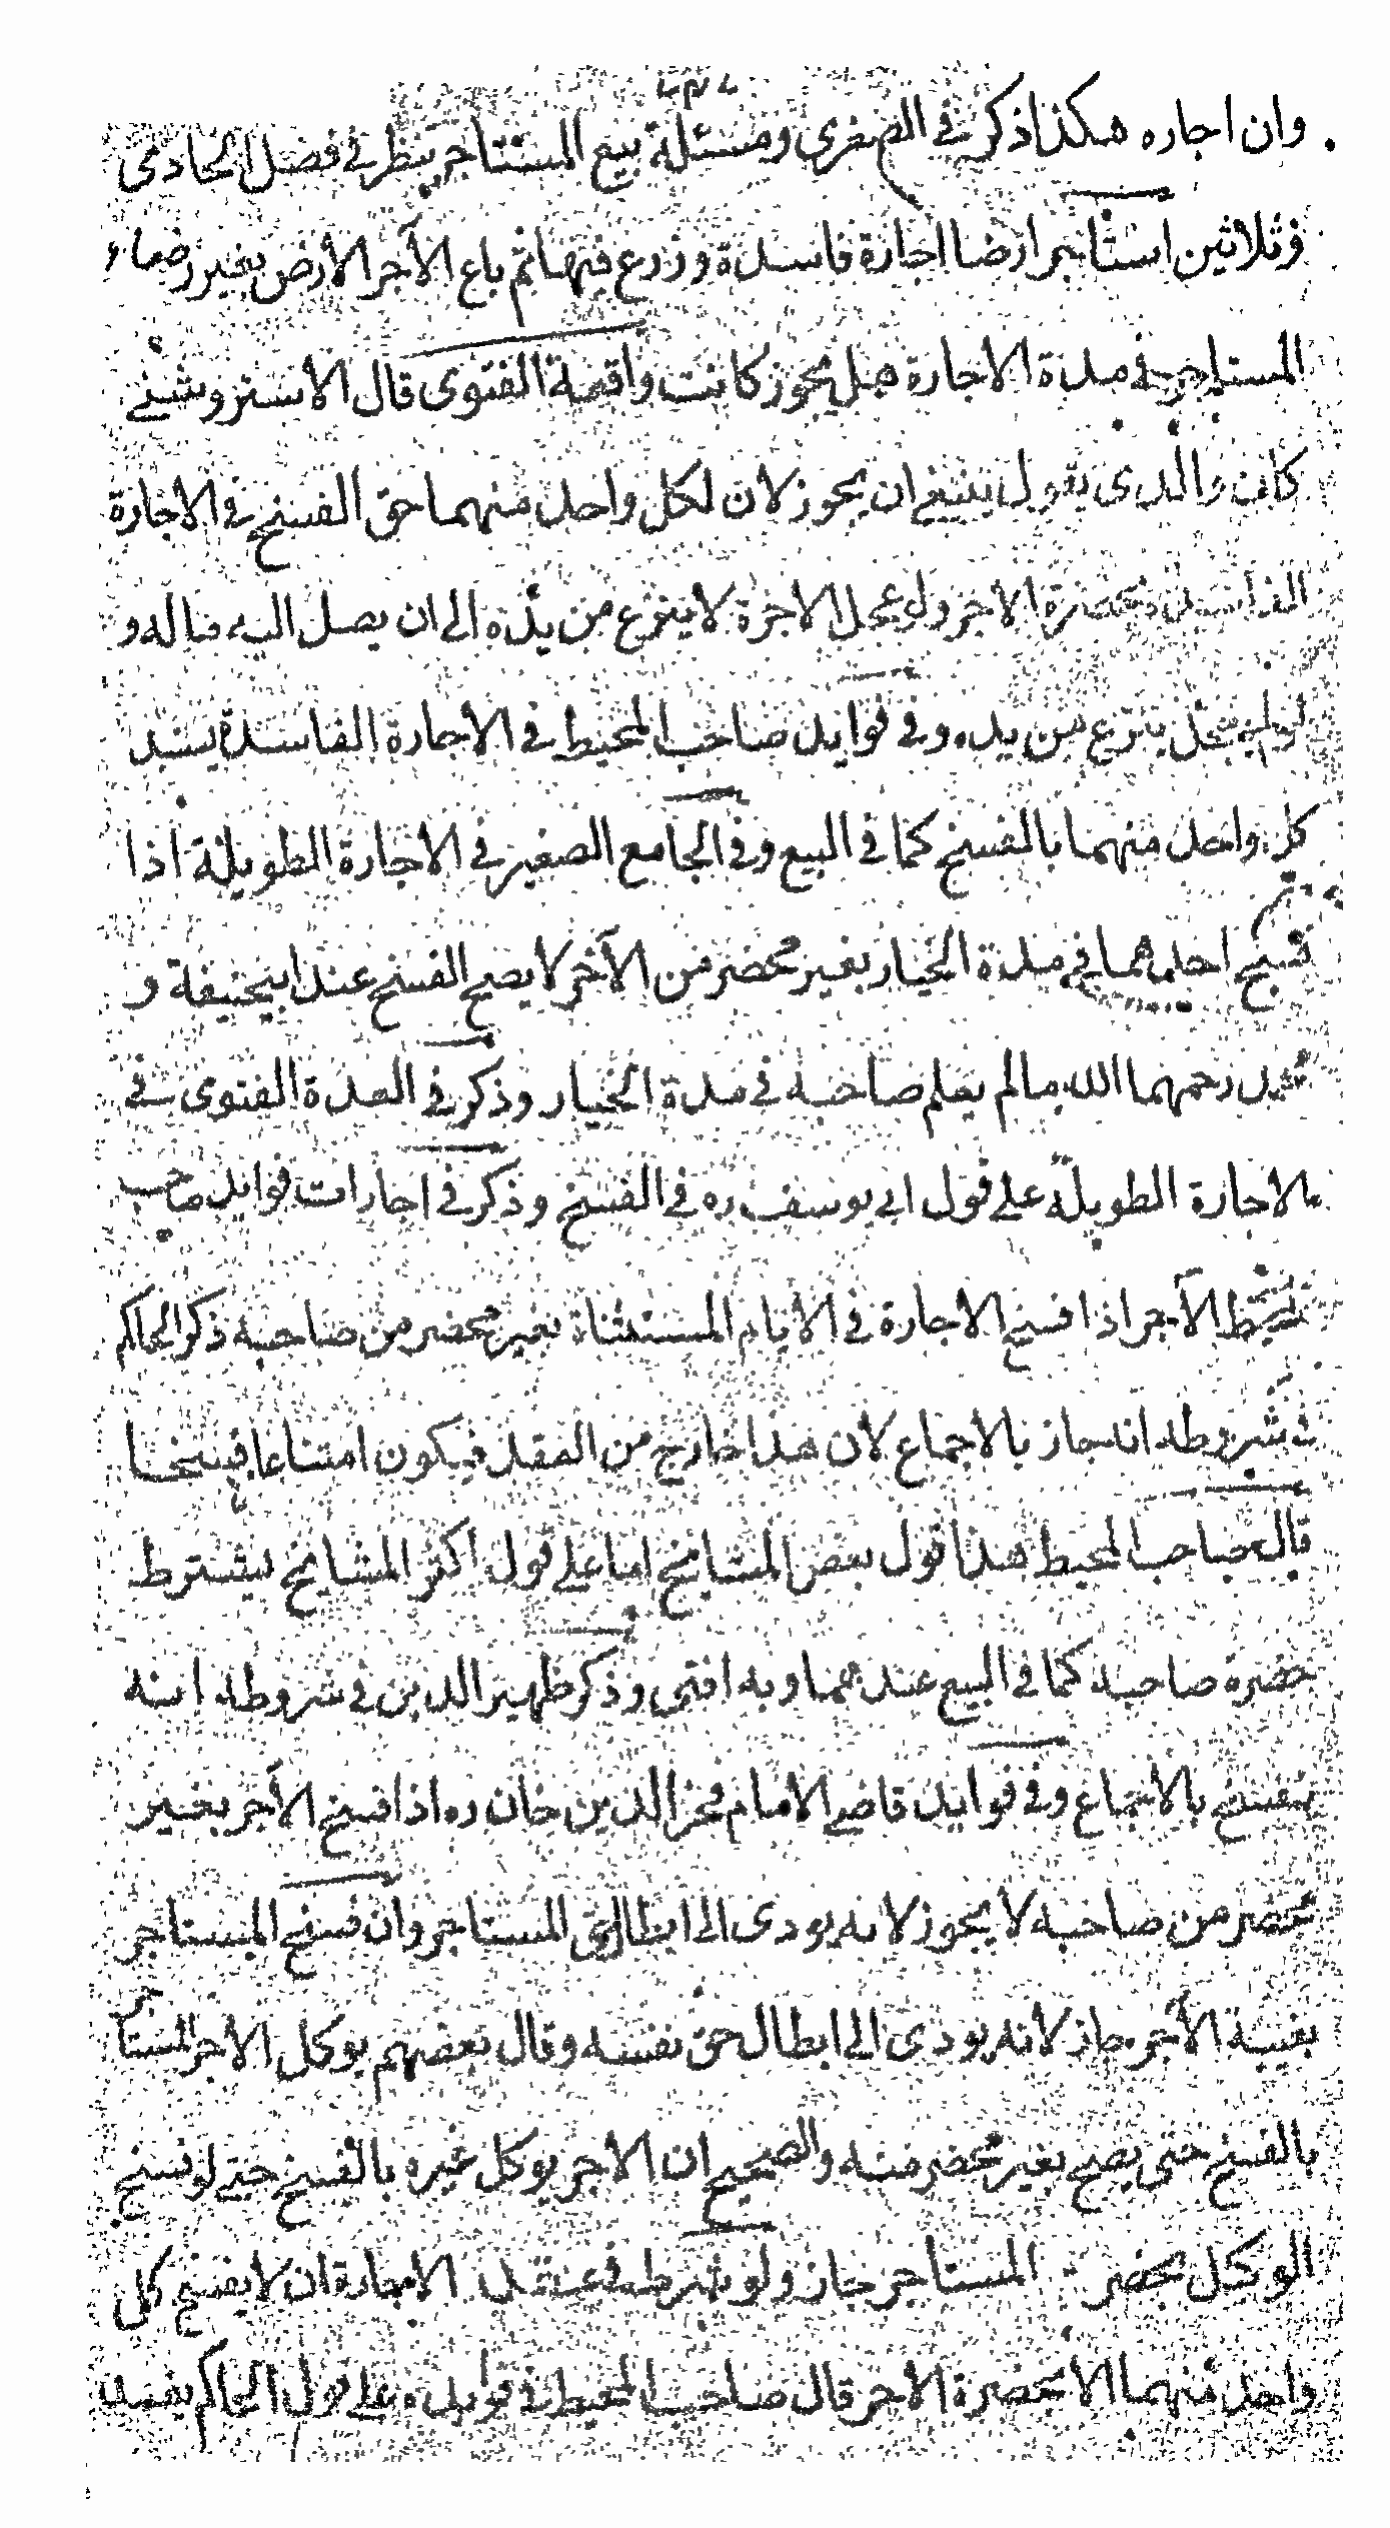 وان اجازه هكذا ذكر في الصغرى ومسئلة بيع المستاجر ينظر في فصل الحادى
وثلاثين استاجر ارضا اجارة فاسدة وزرع فيها ثم باع الآجر الارض بغير رضاء
المستاجر في مدة الاجارة هل يجوز كانت واقعة الفتوى قال الاستروشني
كان والدى يقول ينبغي ان يجوز لان لكل واحد منهما حق الفسخ في الاجارة
الفاسدة بحضرة الاخر ولو عجل الاجرة لا ينزع من يده الى ان يصل اليه ماله و
لو لم يعجل ينزع من يده وفي فوايد صاحب المحيط في الاجارة الفاسدة يستبد
كل واحد منهما بالفسخ كما في البيع وفي الجامع الصغير في الاجارة الطويلة اذا
فسخ احدهما في مدة الخيار بغير محضر من الآخر لا يصح الفسخ عند ابيحنيفة و
محمد رحمهما الله ما لم يعلم صاحبه في مدة الخيار وذكر في العدة الفتوى في
الاجارة الطويلة على قول ابي يوسف ره في الفسخ وذكر في اجارات فوايد صاحب
المحيط الآجر اذا فسخ الاجارة في الايام المستثناة بغير محضر من صاحبه ذكر الحاكم
في شروطه انه جاز بالاجماع لان هذا خارج من العقد فيكون امتناعا لا فسخا
قال صاحب المحيط هذا قول بعض المشايخ اما على قول اكثر المشايخ يشترط
حضرة صاحبه كما في البيع عندهما وبه افتى وذكر ظهير الدين في شروطه انه
ينفسخ بالاجماع وفي فوايد قاضي الامام فخر الدين خان ره اذا فسخ الآجر بغير
محضر من صاحبه لا يجوز لانه يودى الى ابطال حق المستاجر وان فسخ المستاجر
بغيبة الآجر جاز لانه يودى الى ابطال حق نفسه وقال بعضهم يوكل الاجر المستاجر
بالفسخ حتى يصح بغير محضر منه والصحيح ان الاجر يوكل غيره بالفسخ حتى لو فسخ
الوكيل بمحضر المستاجر جاز ولو شرط في عقد الاجارة ان لا يفسخ كل
واحد منهما الا بحضرة الاخر قال صاحب المحيط في فوايده على قول الحاكم يفسد